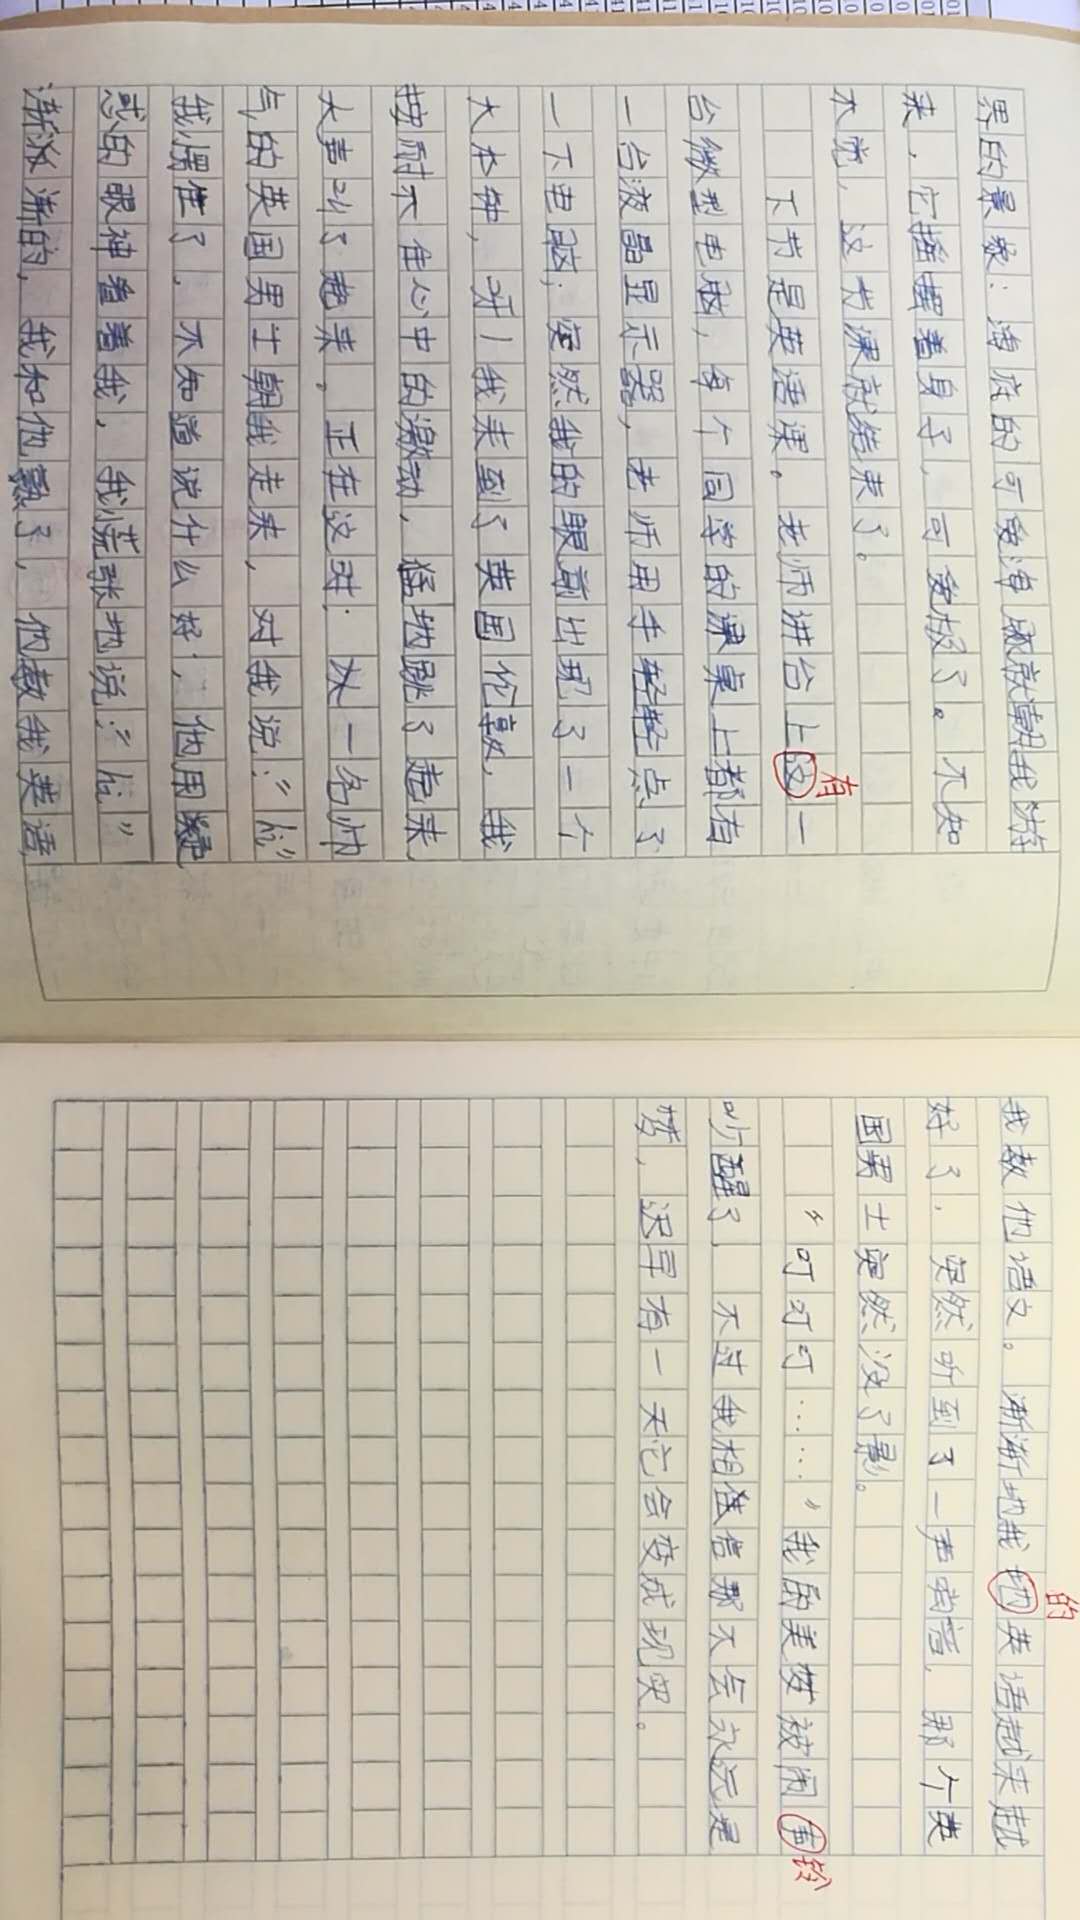 界的景象：海底的可爱海豚就朝我游
来，它摇摆着身子，可爱极了。不知
不觉，这节课就结束了。
下节是英语课。老师讲台上这一
有
台微型电脑，每个同学的课桌上都有
一台液晶显示器，老师用手轻轻点了
一下电脑；突然我的眼前出现了一个
大本钟，呀！我来到了英国伦敦，我
按耐不住心中的激动，猛地跳了起来
大声叫了起来。正在这时；从一名帅
气的英国男士朝我走来，对我说：“hi”
我愣住了，不知道说什么好，他用疑
惑的眼神看着我，我慌张地说：“hi”
渐渐的，我和他熟了，他教我英语
我教他语文。渐渐地我地英语越来越
的
好了，突然听到了一声响音，那个英
国男士突然没了影。
“叮叮叮……”我的美梦被闹
铃
吵醒了，不过我相信那不会永远是
梦，迟早有一天它会变成现实。